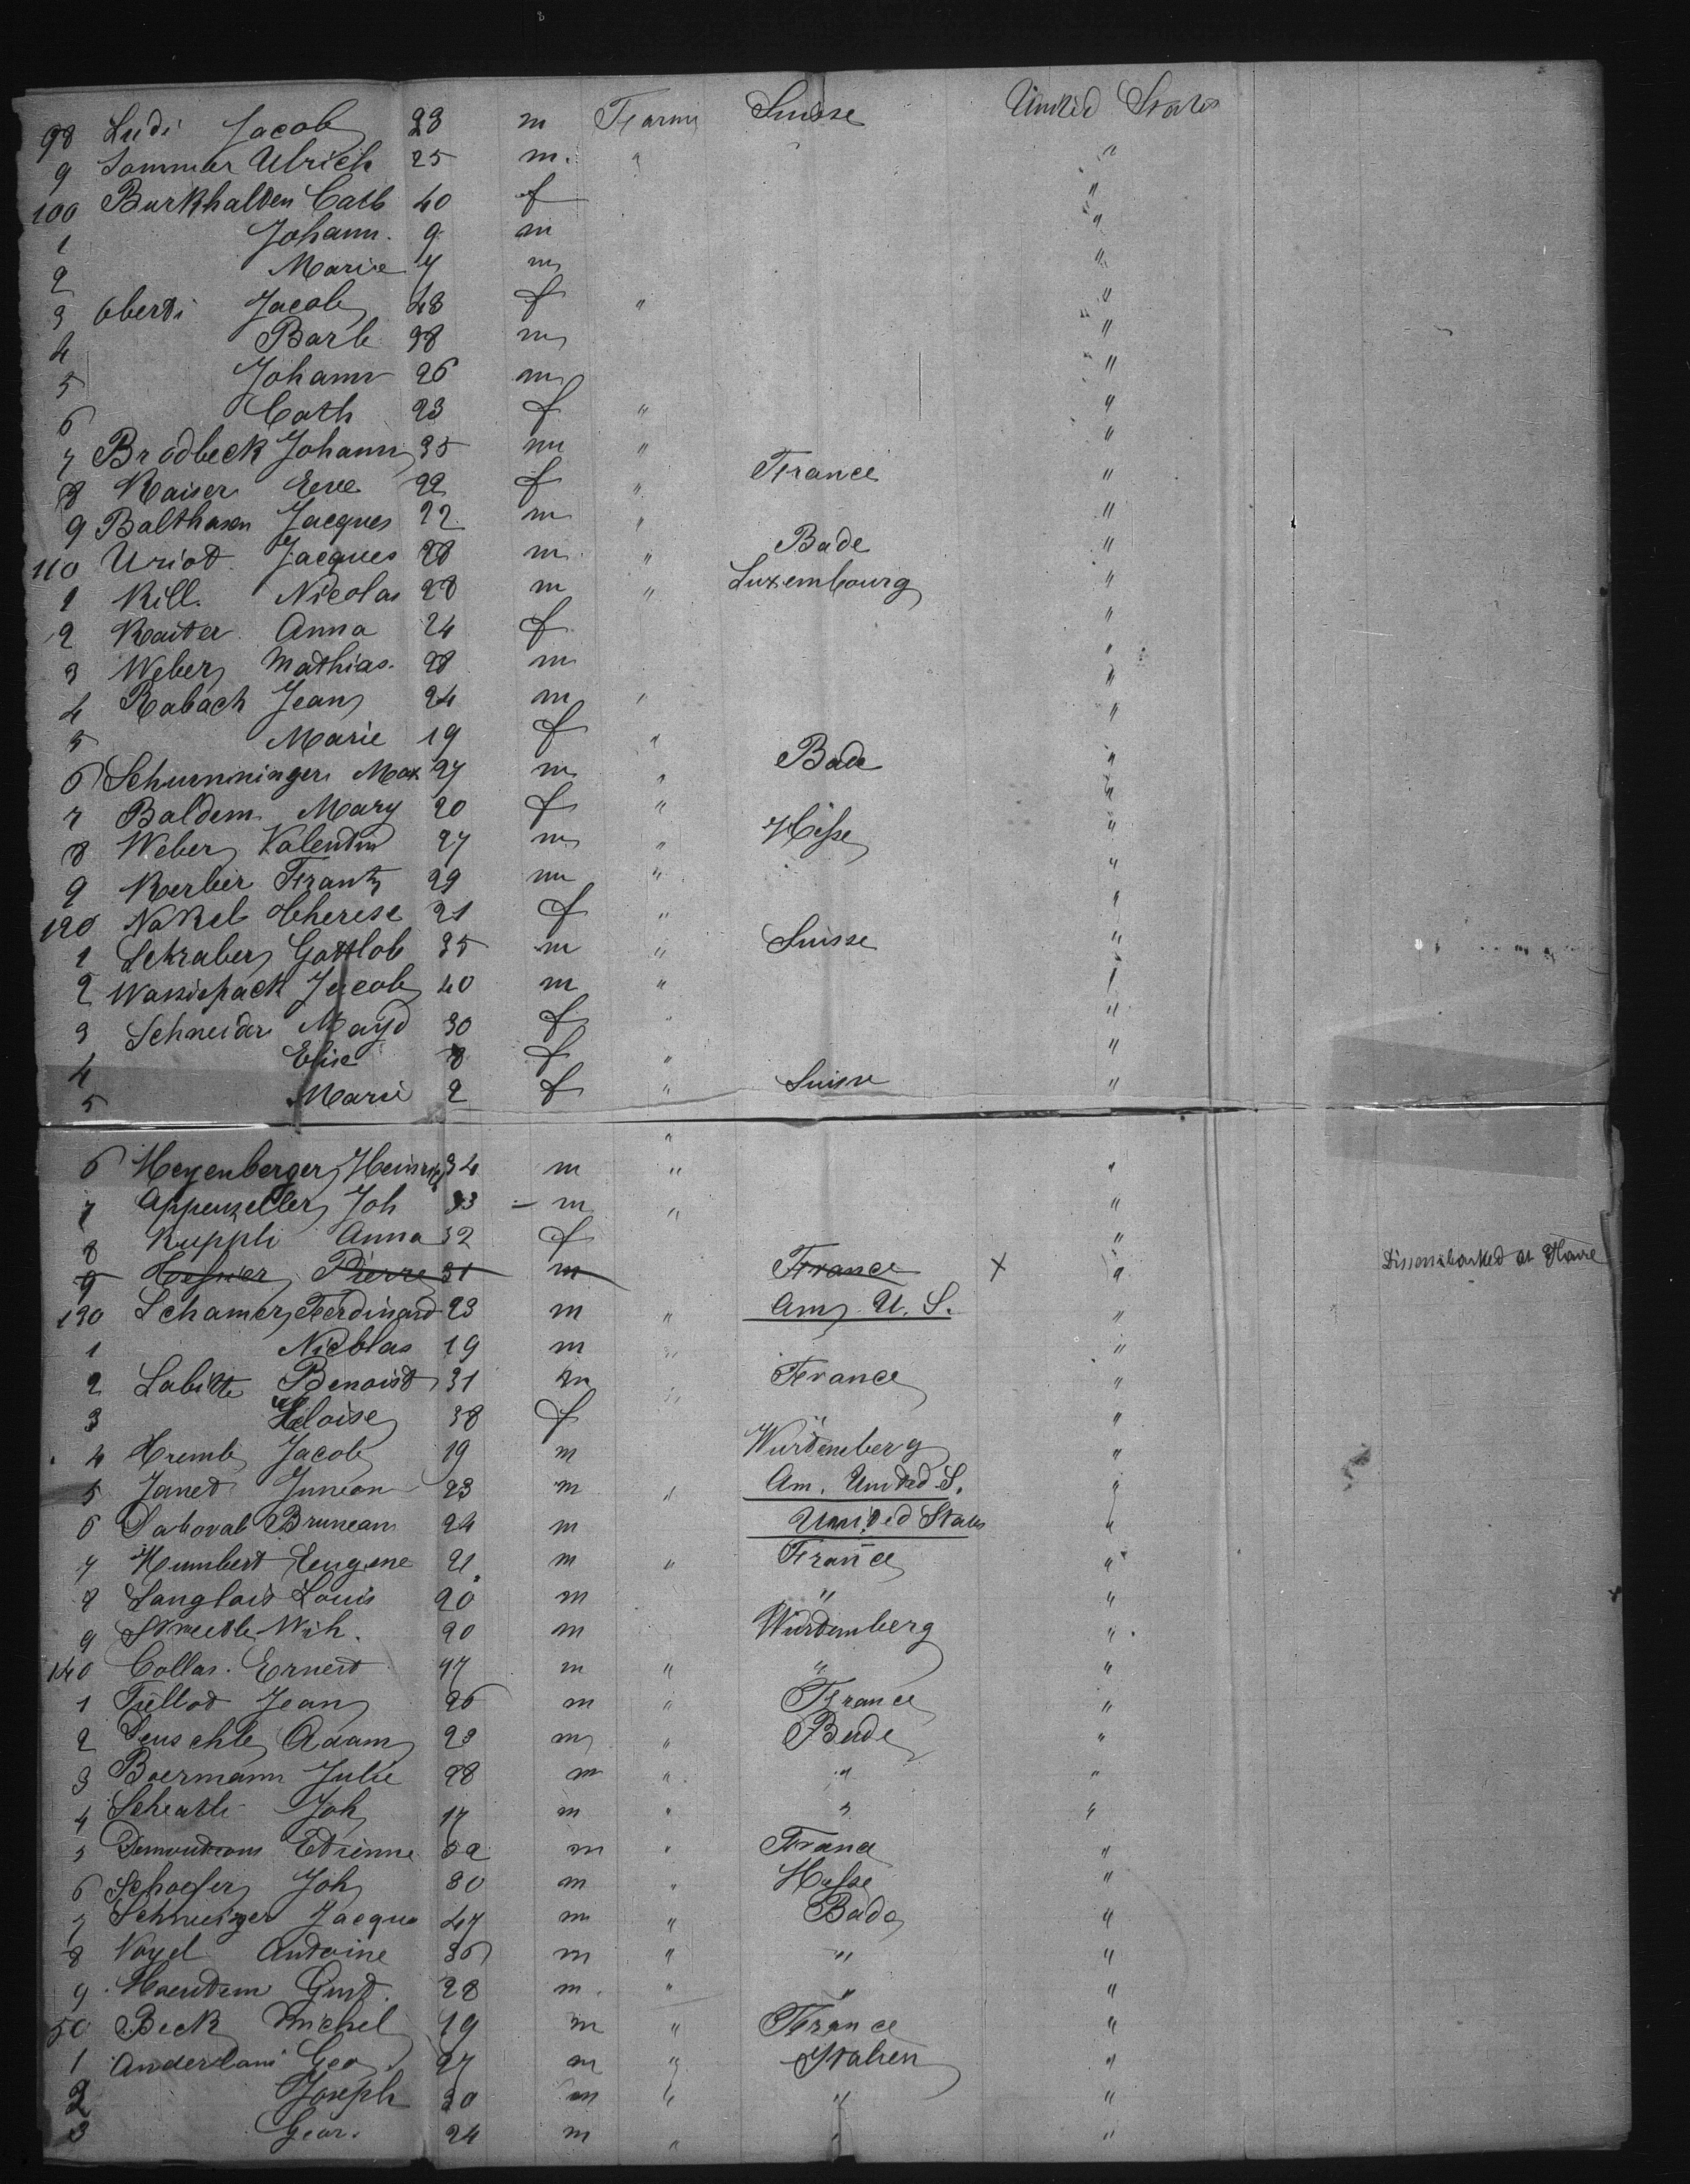 98 Ludi Jacob 23 m Farmer Suisse United States
9 Sommer Ulrich 25 m. " "
100 Burkhalden Cath 40 f "
1 Johann. 9 m "
2 Marie 7 m "
3 Oberti Jacob 48 f " "
4 Barb 38 m "
5 Johann 26 m "
6 Cath 23 f " "
7 Brodbeck Johann 35 m " "
8 Kaiser Eve 22 f " France "
9 Balthasen Jacques 22 m " "
110 Uriot. Jacques 28 m " Bade "
1 Kill. Nicolas 28 m " Luxembourg "
2 Kaiter Anna 24 f "
3 Weber Mathias. 28 m "
4 Rabach Jean 24 m " "
5 Marie 19 f " "
6 Schurnninger Max 27 m " Bade "
7 Baldem Mary 20 f " "
8 Weber Valentin 27 m " Hesse "
9 Kerber Frantz 29 m " "
120 Nakel Therese 21 f " "
1 Schraber Gottlob 35 m " Suisse "
2 Jacob 40 m " "
3 Schneider 30 f " "
4 Elise 8 f " "
5 Marie 2 f " Suisse "
6 Meyenberger Heinrich 34 m " "
7 Appenzeller Joh 33 - m " "
8 Kuppli Anna 32 f "
9 Pierre 31 m France X " Disembarked at Havre
130 Schamer Ferdinand 23 m " Am U. S. "
1 Nicolas 19 m " "
2 Labitte Benoist 31 m " France "
3 Heloise 38 f " "
4 Hremb Jacob 19 m Wurtemberg "
5 Janet Junion 23 m " Am. United S. "
6 Bruneau 24 m United States "
7 Humbert Eugene 21. m " France "
8 Langlois Louis 20 m " "
9 Wih. 20 m Wurtemberg "
140 Collas. Ernest 47 m " " "
1 Jean 26 m " France "
2 Deuschle Adam 23 m " Bade "
3 Boermann Julie 28 m " " "
4 Joh 17 m " " "
5 Etienne 52 m " France "
6 Schoefer Joh 30 m " Hesse "
7 Jacques 47 m " Bade "
8 Vogel Antoine 36 m " " "
9 Gust. 28 m. " " "
50 Beck Michel 19 m " France "
1 Geo. 27 m " Italien "
2 Joseph 30 m " " "
3 Gear. 24 m " " "